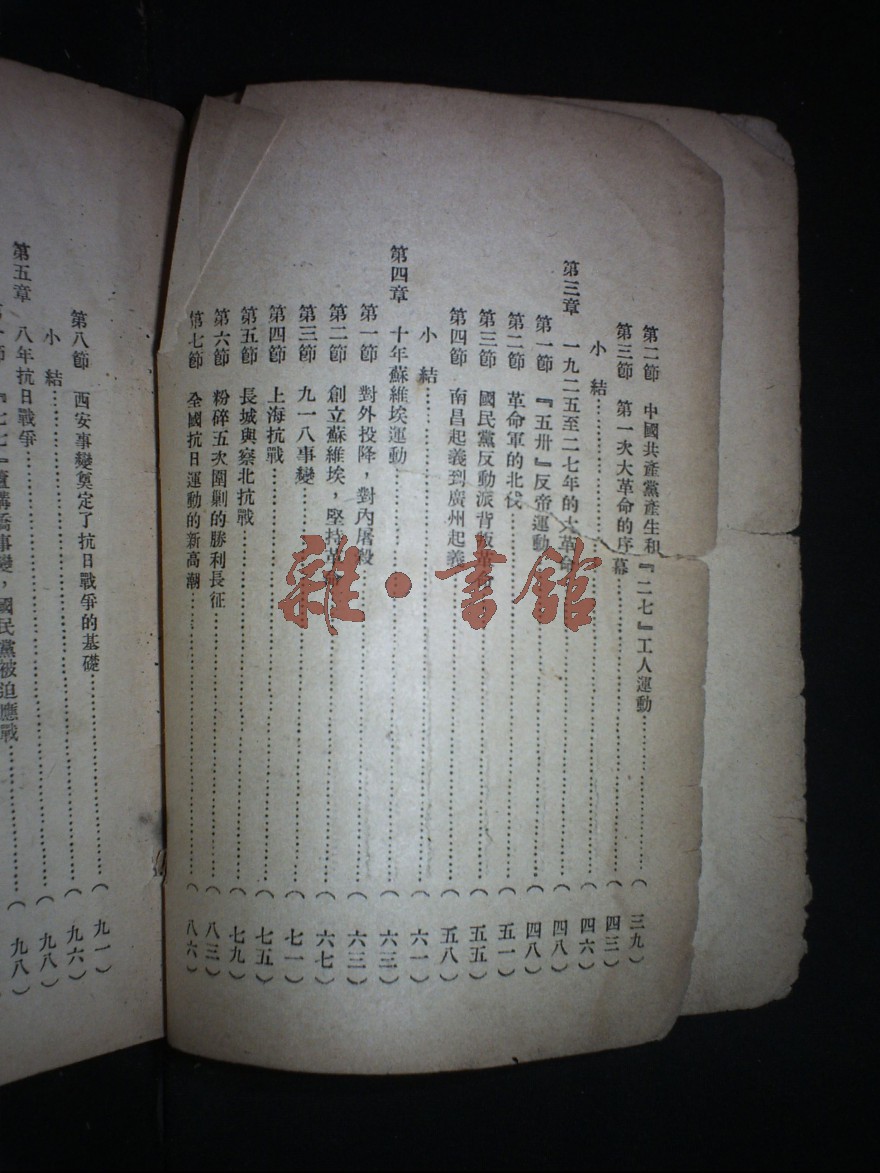 第二節 中國共產黨產生和『二七』工人運動……(三九)
第三節 第一次大革命的序幕……(四三)
小結……(四六)
第三章 一九二五至二七年的大革命……(四八)
第一節 『五卅』反帝運動……(四八)
第二節 革命軍的北伐……(五一)
第三節 國民黨反動派背叛革命……(五五)
第四節 南昌起義到廣州起義……(五八)
小結……(六一)
第四章 十年蘇維埃運動……(六三)
第一節 對外投降,對內屠殺……(六三)
第二節 創立蘇維埃,堅持革命……(六七)
第三節 九一八事變……(七一)
第四節 上海抗戰……(七五)
第五節 長城與察北抗戰……(七九)
第六節 粉碎五次圍剿的勝利長征……(八三)
第七節 全國抗日運動的新高潮……(八六)
第八節 西安事變奠定了抗日戰爭的基礎……(九一)
小結……(九六)
第五章 八年抗日戰爭……(九八)
節 『七七』蘆溝橋事變,國民黨被迫應戰……(九八)
雜·書館